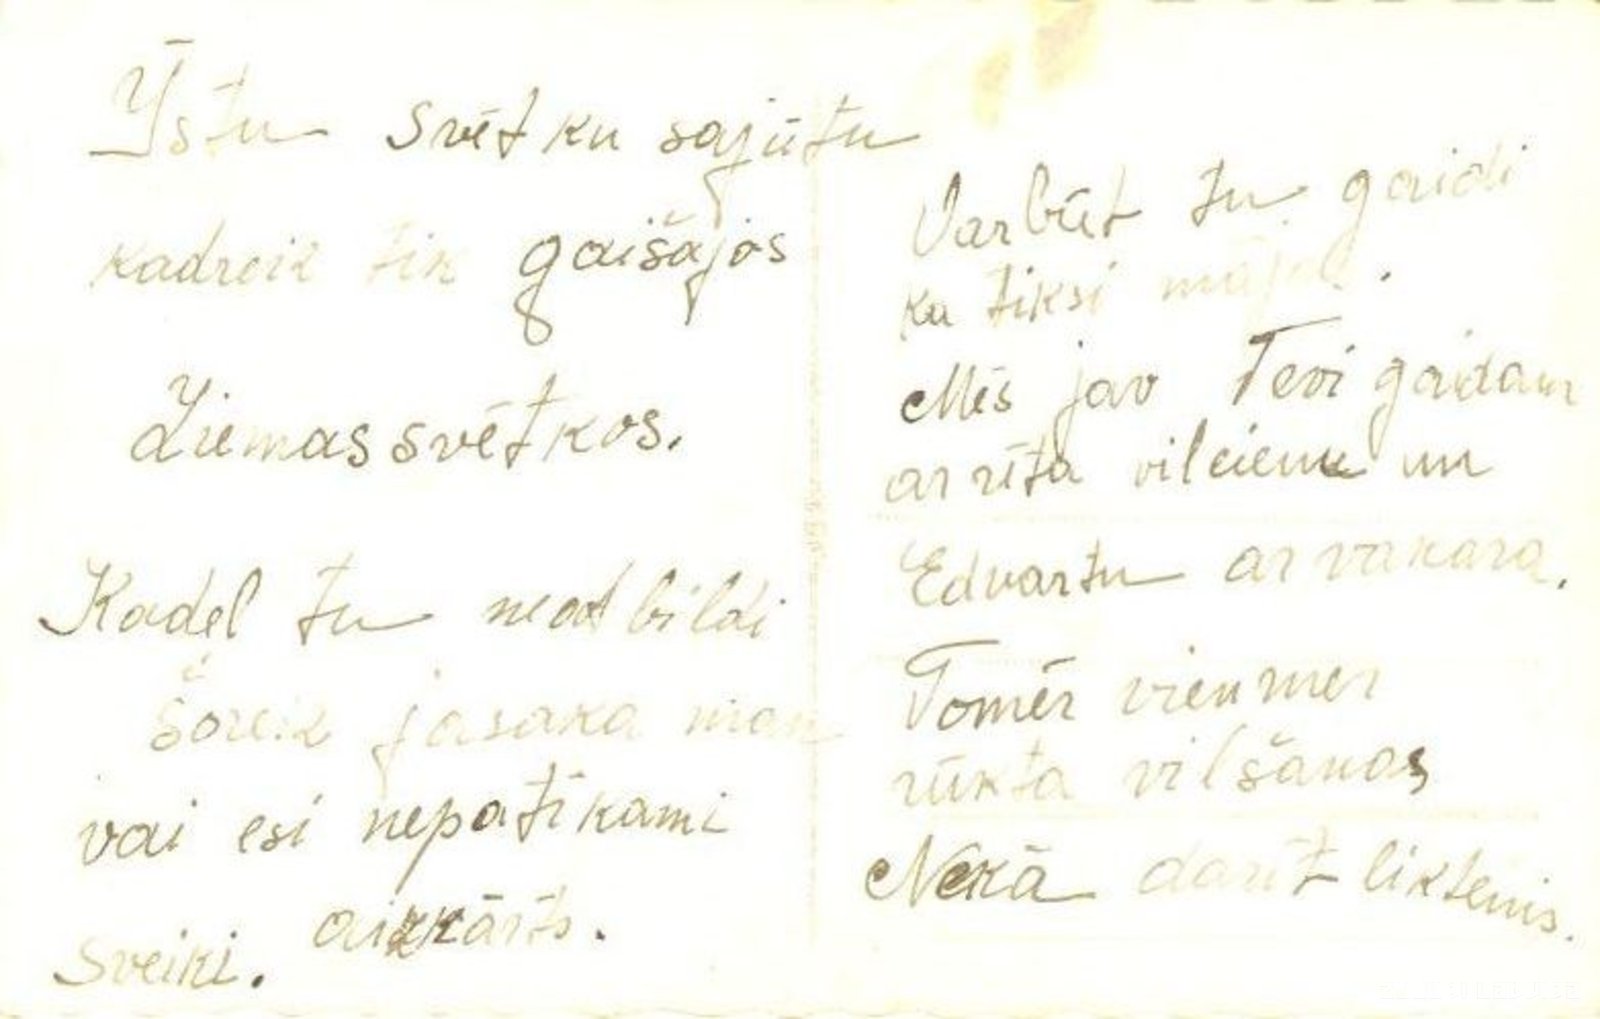 Īstu svētku sajūtu
kadreiz tik gaišajos
Ziemassvētkos.
Kadeļ tu neatbildi
šoreiz jasaka man
vai esi nepatīkami
aizkārts.
Sveiki.
Varbūt tu gaidi
ka tiksi mājās.
Mēs jav Tevi gaidam
ar rīta vilcienu un
Edvartu ar vakara.
Tomēr vienmer
rūkta vilšanas
Nekā darīt liktenis.